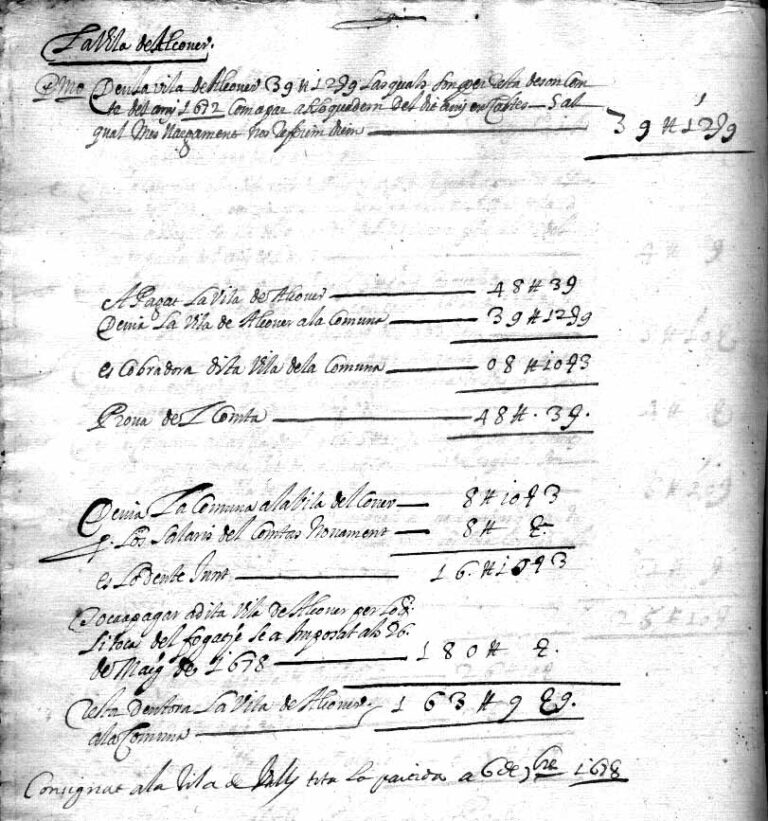 La Vila de Alcover.
Pmo Deu la vila de Alcover 39 ₶ 12 ß 9 Las quals son per resta de son Com
te del any 1672 Com apar del dit any en Cartes 5 al
qual Nos
39 ₶ 12 ß 9
A Pagat La Vila de Alcover 48 ₶ 3 9
Devia La Vila de Alcover a la Comuna 39 ₶ 12 ß 9
es Cobradora dita Vila de la Comuna 08 ₶ 10 ß 3
Prova de L Comta 48 ₶ . 3 9.
Devia La Comuna a la Vila del Cover 8 ₶ 10 ß 3
p. Los Salaris del Comtar Novament 8 ₶ ß
es Lo Deute Junt 16 ₶ 10 ß 3
Toca a pagar a dita Vila De Alcover per lo q.
li toca del fogatje se a Imposat als 26.
de Maig de 1678 180 ₶ ß.
Resta Deutora La Vila de Alcover 163 ₶ 9 ß 9.
a la Comuna
Consignat a la Vila de Valls la partida a 6 de 1678